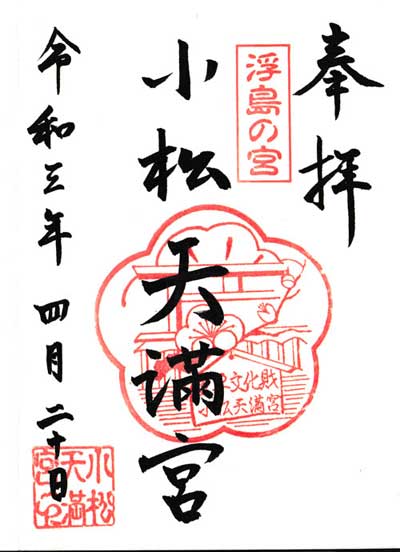 奉拝
浮島の宮
小松天満宮
文化財
小松天満宮
令和三年 四月 二十日
小松
天満
宮之印